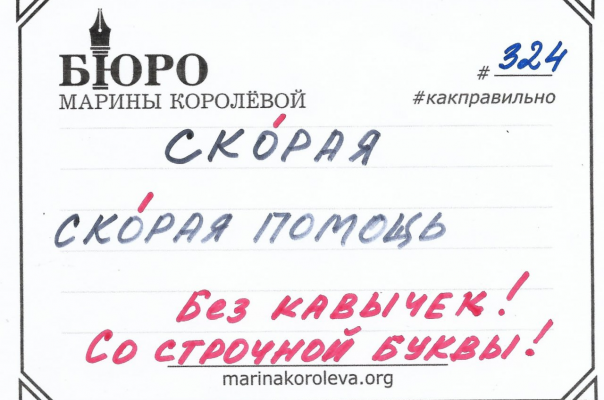 БЮРО
МАРИНЫ КОРОЛЁВОЙ
# 324
#какправильно
СКО́РАЯ
СКО́РАЯ ПОМОЩЬ
Без КАВЫЧЕК!
Со СТРОЧНОЙ БУКВЫ!
marinakoroleva.org